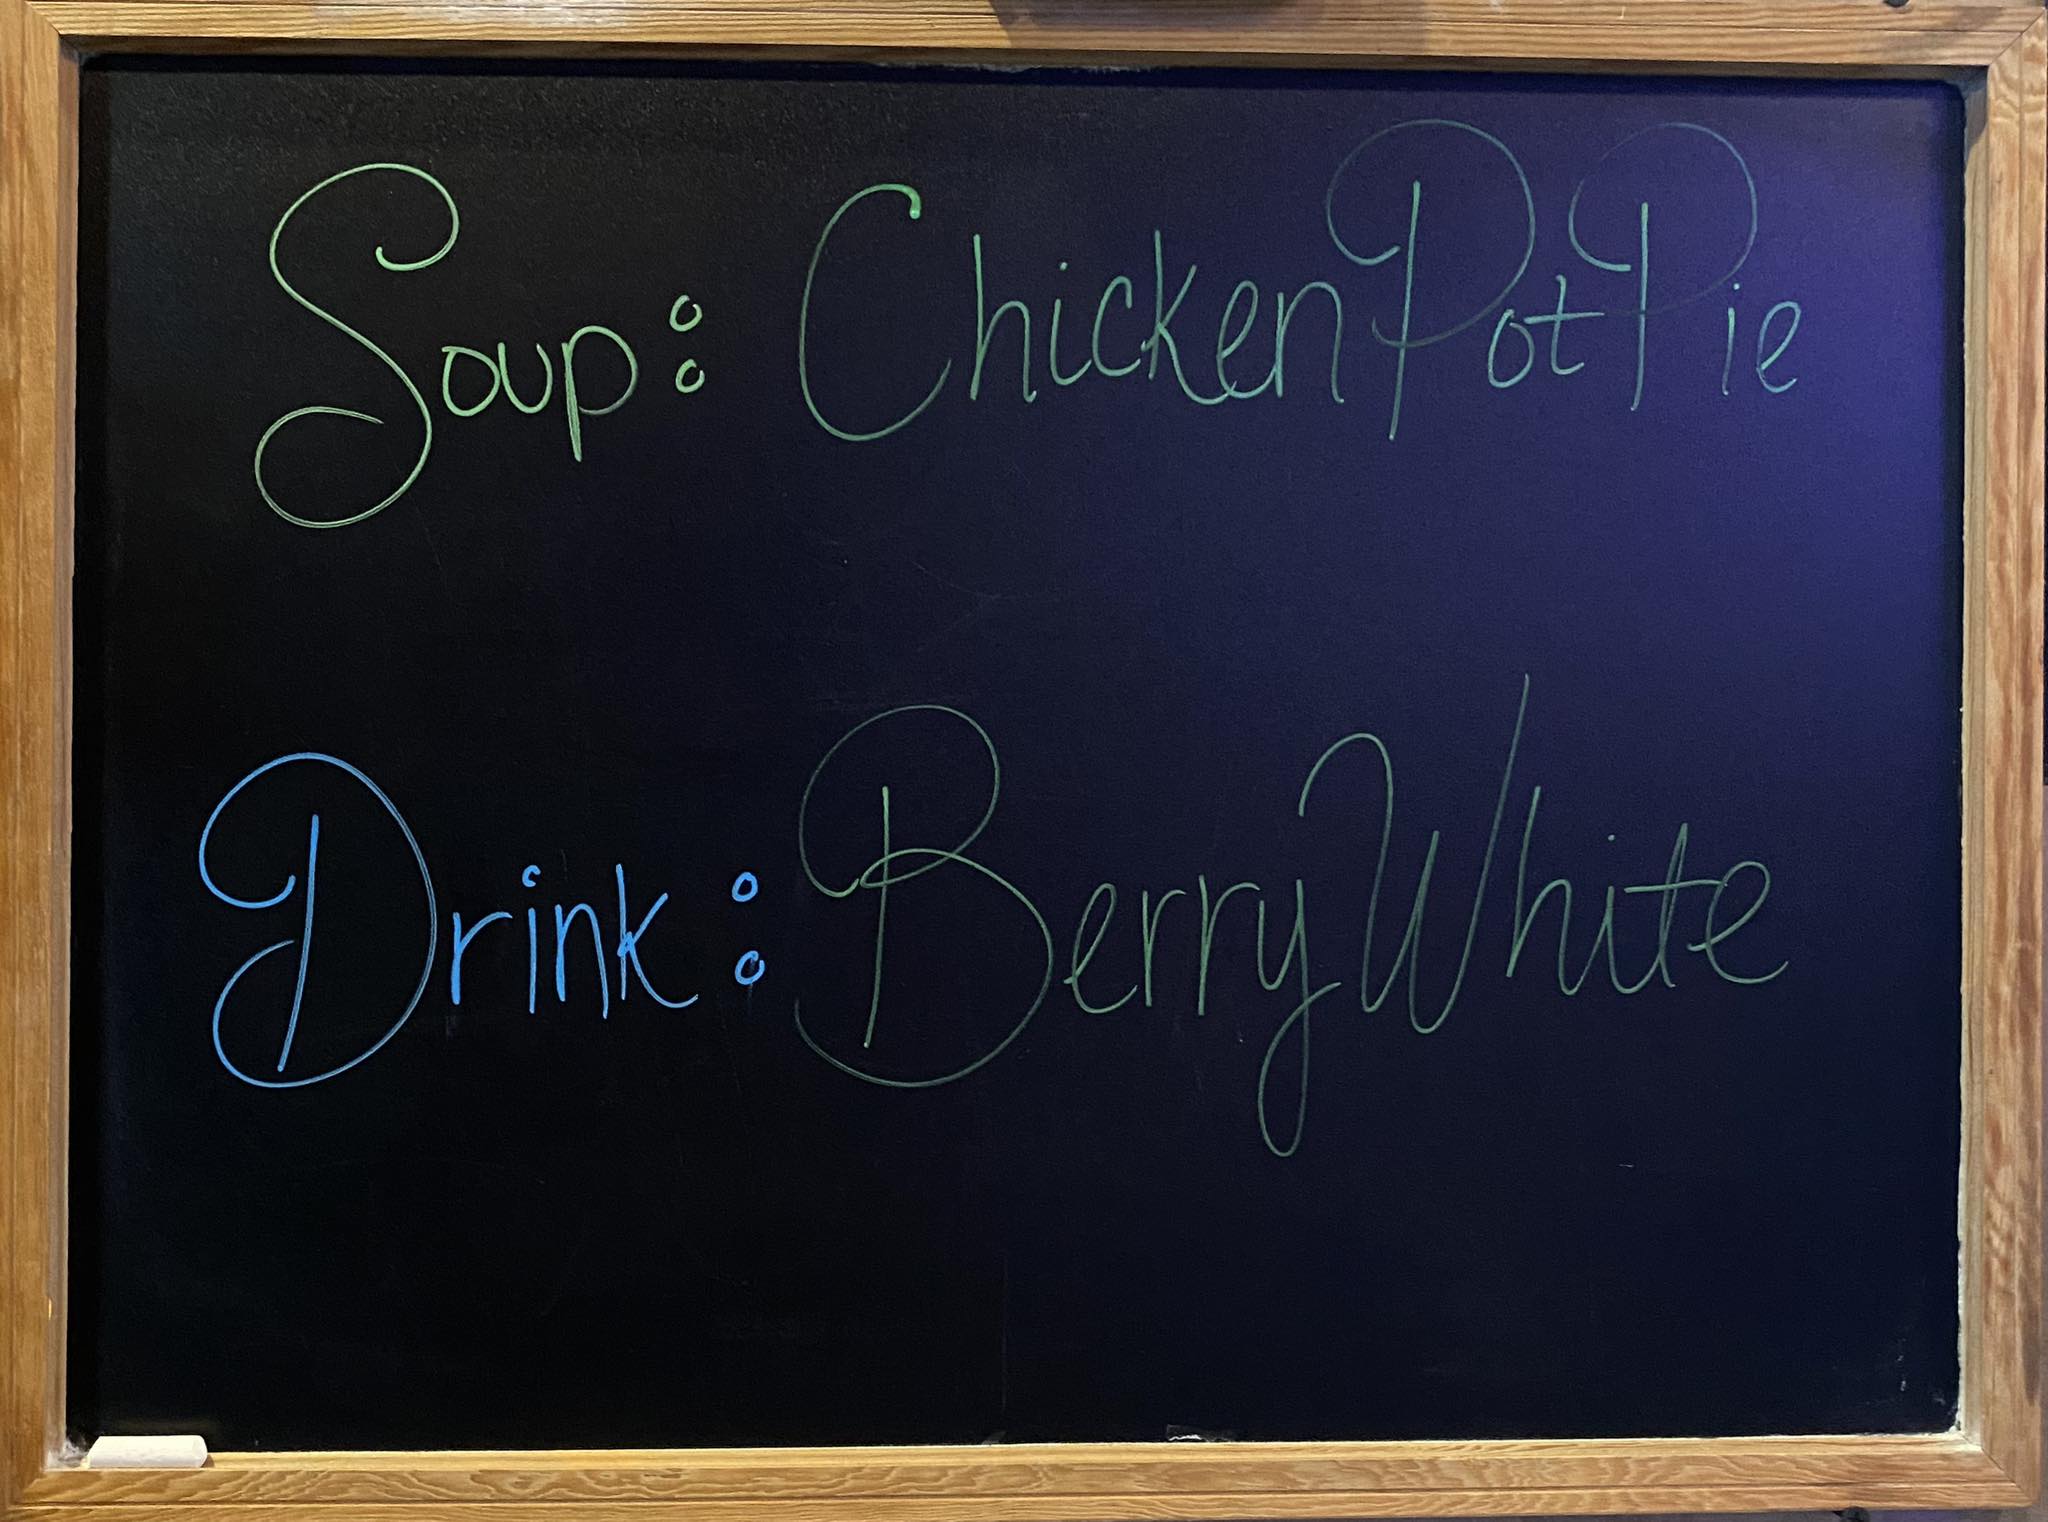 Soup: Chicken Pot Pie
Drink: Berry White